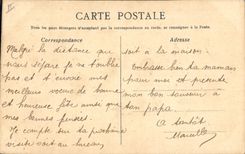 CARTE POSTALE
Tous les pays étrangers n'acceptent pas la correspondance au recto, se renseigner à la Poste.
Correspondance
Adresse
Malgré la distance que
nous sépare je ne t'oublie
pas et t'envoie mes
meilleurs voeux de bonne
et heureuse fête ainsi que
mes bonnes pensées.
Je compte sur ta prochaine
visite soit au bureau
soit à la maison.
Embrasse bien ta maman
pour moi et présente
mon bon souvenir à
ton papa
A bientôt
Marcelle